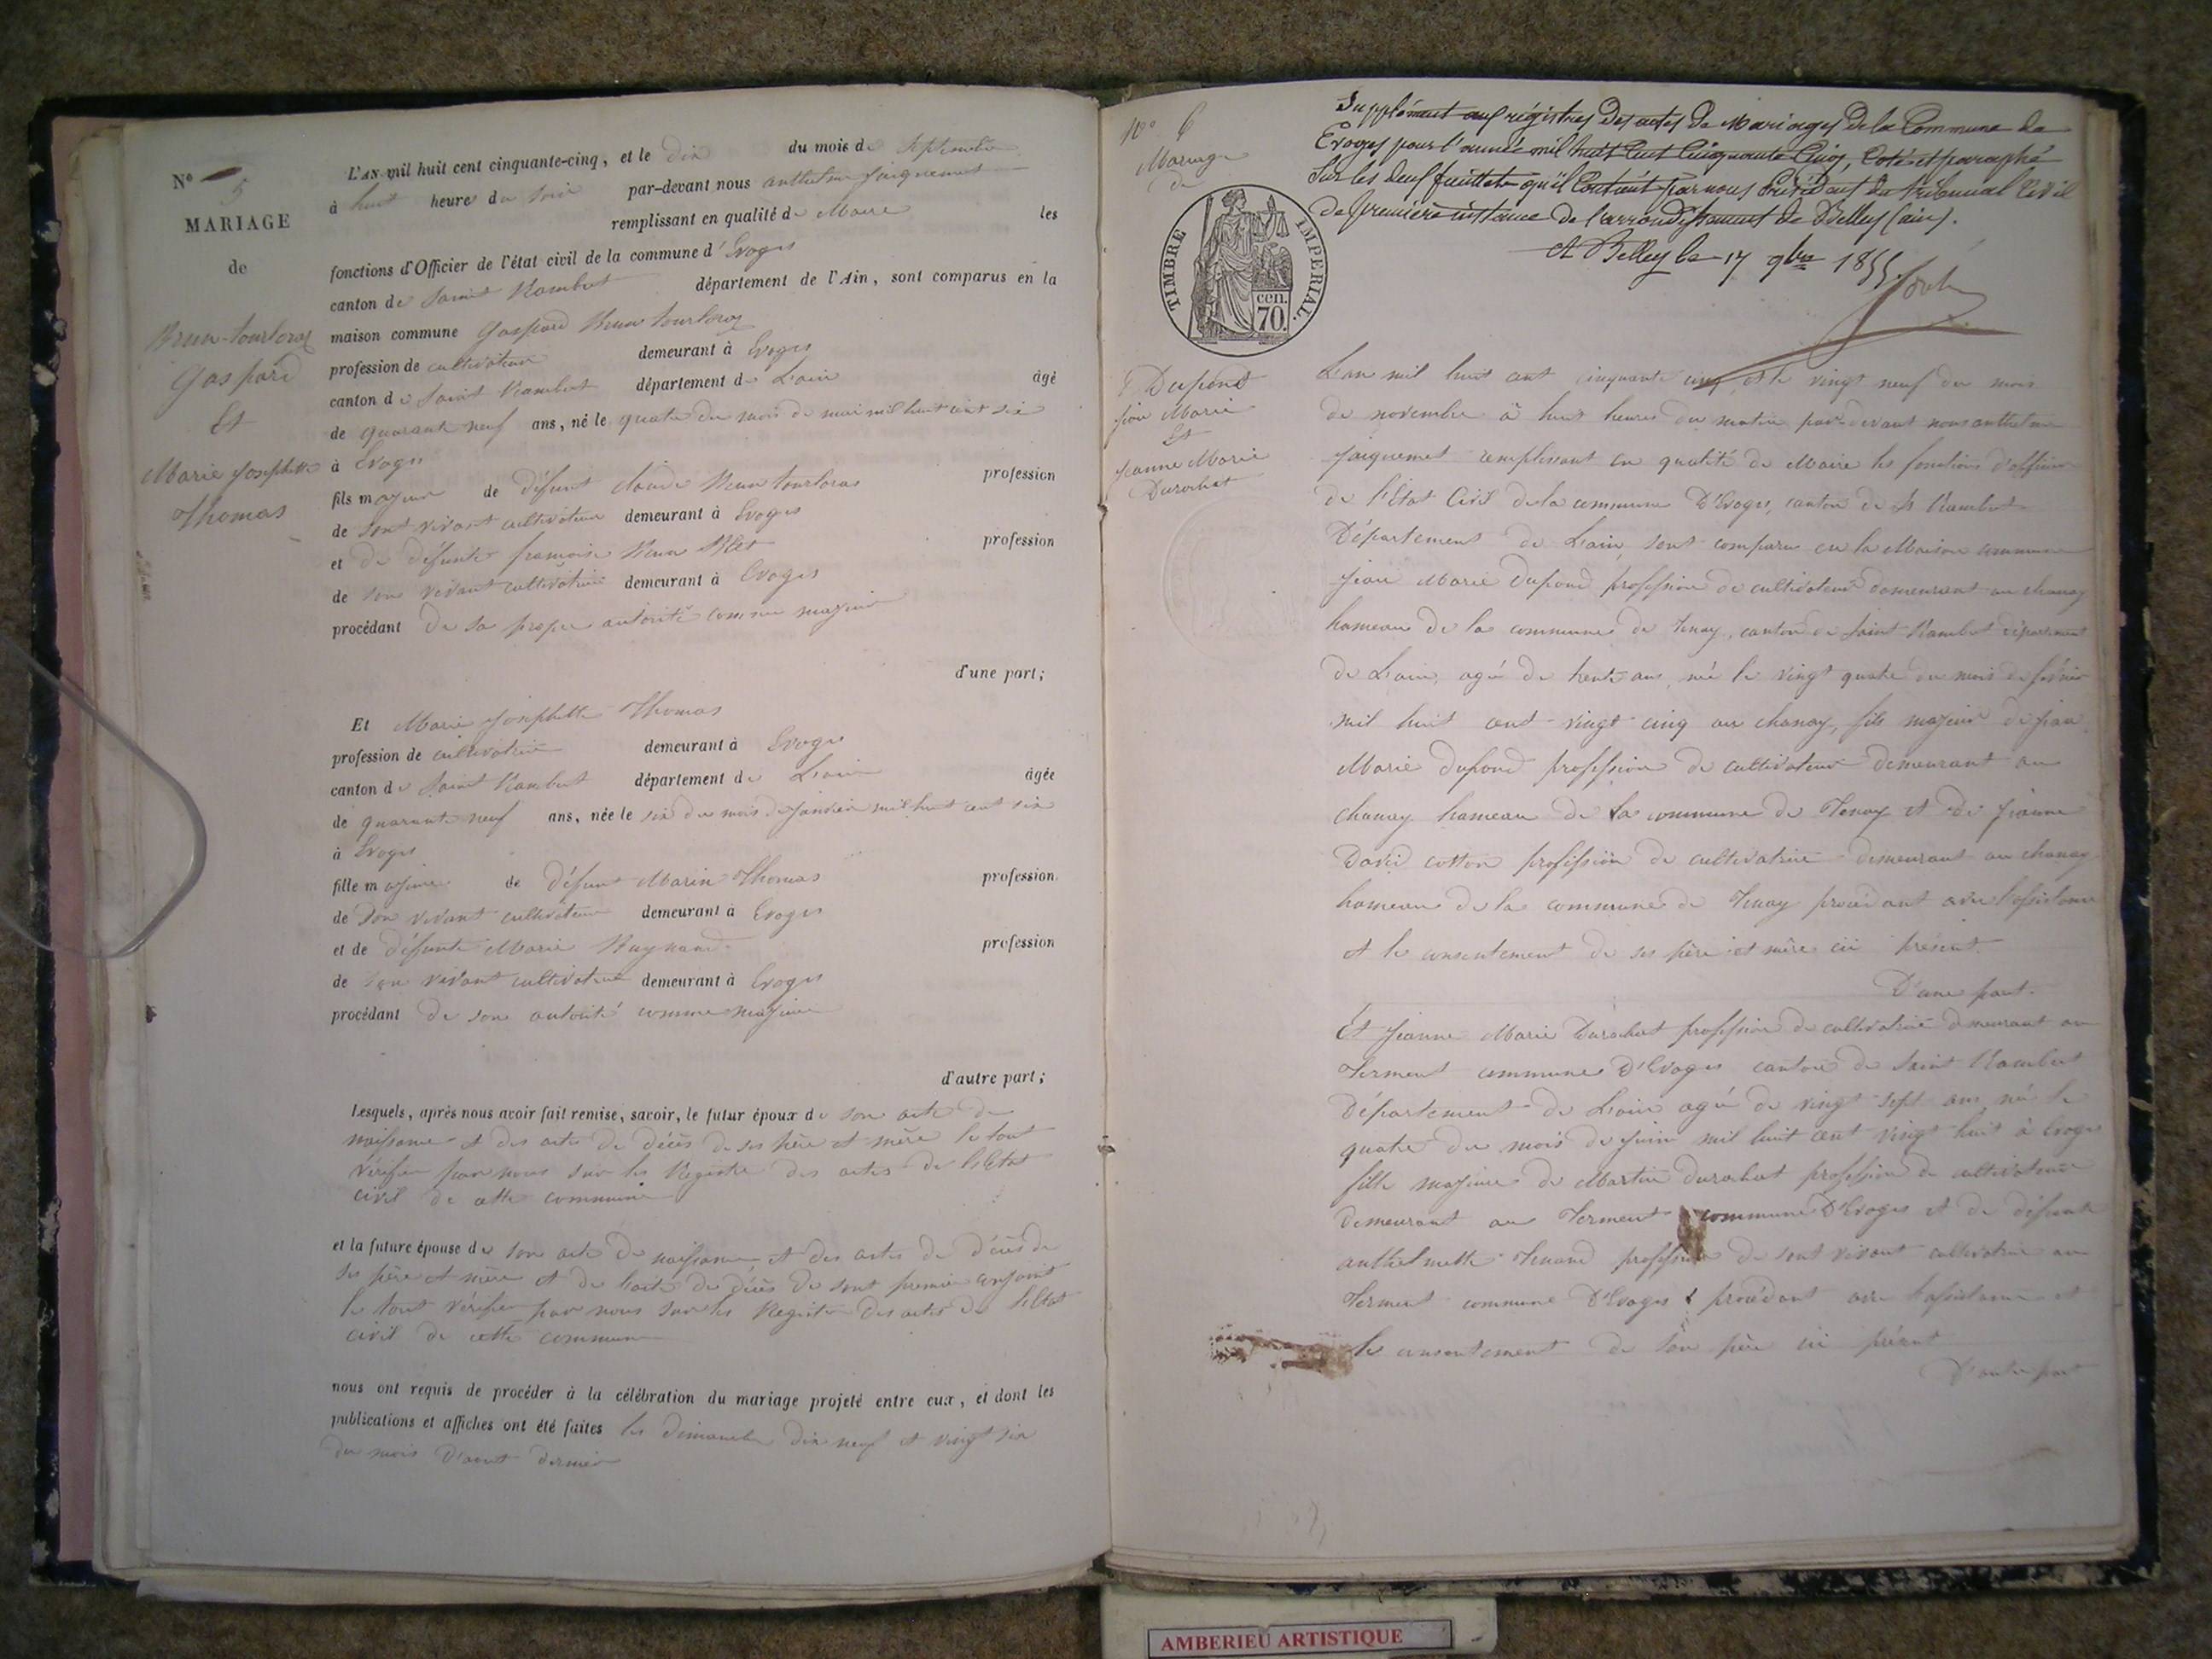 N° 5
MARIAGE
de
Brun-tourloraz
Gaspard
Et
Marie Josephette
Thomas
L'AN mil huit cent cinquante-cinq, et le dix du mois de septembre
à huit heures du soir par-devant nous anthelme Jaiquemet
remplissant en qualité de Maire les
fonctions d'Officier de l'état civil de la commune d'Evoges
canton de Saint Rambert département de l'Ain, sont comparus en la
maison commune Gaspard Brun tourloraz
profession de cultivateur demeurant à Evoges
canton de Saint Rambert département de L'ain âgé
de quarante neuf ans, né le quatre du mois de mai mil huit cent six
à Evoges
fils majeur de défunt Claude Brun tourloras profession
de sont vivant cultivateur demeurant à Evoges
et de défunte françoise Brun profession
de son vivant cultivatrice demeurant à Evoges
procédant de sa propre autorité comme majeur
d'une part;
Et Marie Josephette Thomas
profession de cultivatrice demeurant à Evoges
canton de Saint Rambert département de L'ain âgée
de quarante neuf ans, née le six du mois de janvier mil huit cent six
à Evoges
fille majeure de défunt Marin Thomas profession
de son vivant cultivateur demeurant à Evoges
et de défunte Marie Reynand profession
de son vivant cultivatrice demeurant à Evoges
procédant de son autorité comme majeure
d'autre part;
Lesquels, après nous avoir fait remise, savoir, le futur époux de son acte de
naissance et des actes de décès de ses père et mère le tout
vérifier par nous sur les Registre des actes de l'Etat
civil de cette commune
et la future épouse de son acte de naissance et des actes de décès de
ses père et mère et de l'acte de décès de sont premier conjoint
le tout vérifier par nous sur les Registre des actes de l'Etat
civil de cette commune
nous ont requis de procéder à la célébration du mariage projeté entre eux, et dont les
publications et affiches ont été faites les dimanche dix neuf et vingt six
du mois d'aout dernier
N° 6
Mariage
de
Dupond
Jean Marie
Et
Jeanne Marie
Durochat
TIMBRE IMPERIAL.
cen.
70.
Supplément aux régistres des actes de Mariages de la Commune de
Evoges pour l'année mil huit Cent Cinquante Cinq, Coté et paraphé
Sur les deux feuillets qu'il Contient par nous Président du tribunal Civil
de première instance de l'arrondissement de Belley (ain).
A Belley le 17 9bre 1855.
L'an mil huit cent cinquante cinq et le vingt neuf du mois
de novembre à huit heures du matin par-devant nous anthelme
Jaiquemet remplissant en qualité de Maire les fonctions d'officier
de l'Etat Civil de la commune D'Evoges, canton de St Rambert
Département de L'ain, sont comparu en la Maison commune
Jean Marie Dupond profession de cultivateur demeurant au chanay
hameau de la commune de Tenay, canton de Saint Rambert département
de L'ain, agé de trente ans, né le vingt quatre du mois de février
mil huit cent vingt cinq au chanay, fils majeur de jean
Marie dupond profession de cultivateur demeurant au
chanay hameau de la commune de Tenay et de Jeanne
David cotton profession de cultivatrice demeurant au chanay
hameau de la commune de Tenay procédant avec l'assistance
et le consentement de ses père et mère ici présent
D'une part.
Et Jeanne Marie Durochat profession de cultivatrice demeurant au
Terment commune D'Evoges canton de Saint Rambert
département de L'ain agée de vingt sept ans, née le
quatre du mois de juin mil huit cent vingt huit à Evoges
fille majeure de Martin durochat profession de cultivateur
demeurant au Terment commune D'Evoges et de défunte
anthelmette Tenand profession de sont vivant cultivatrice au
Terment commune D'Evoges procédant avec l'assistance et
le consentement de son père ici présent
D'autre part
AMBERIEU ARTISTIQUE